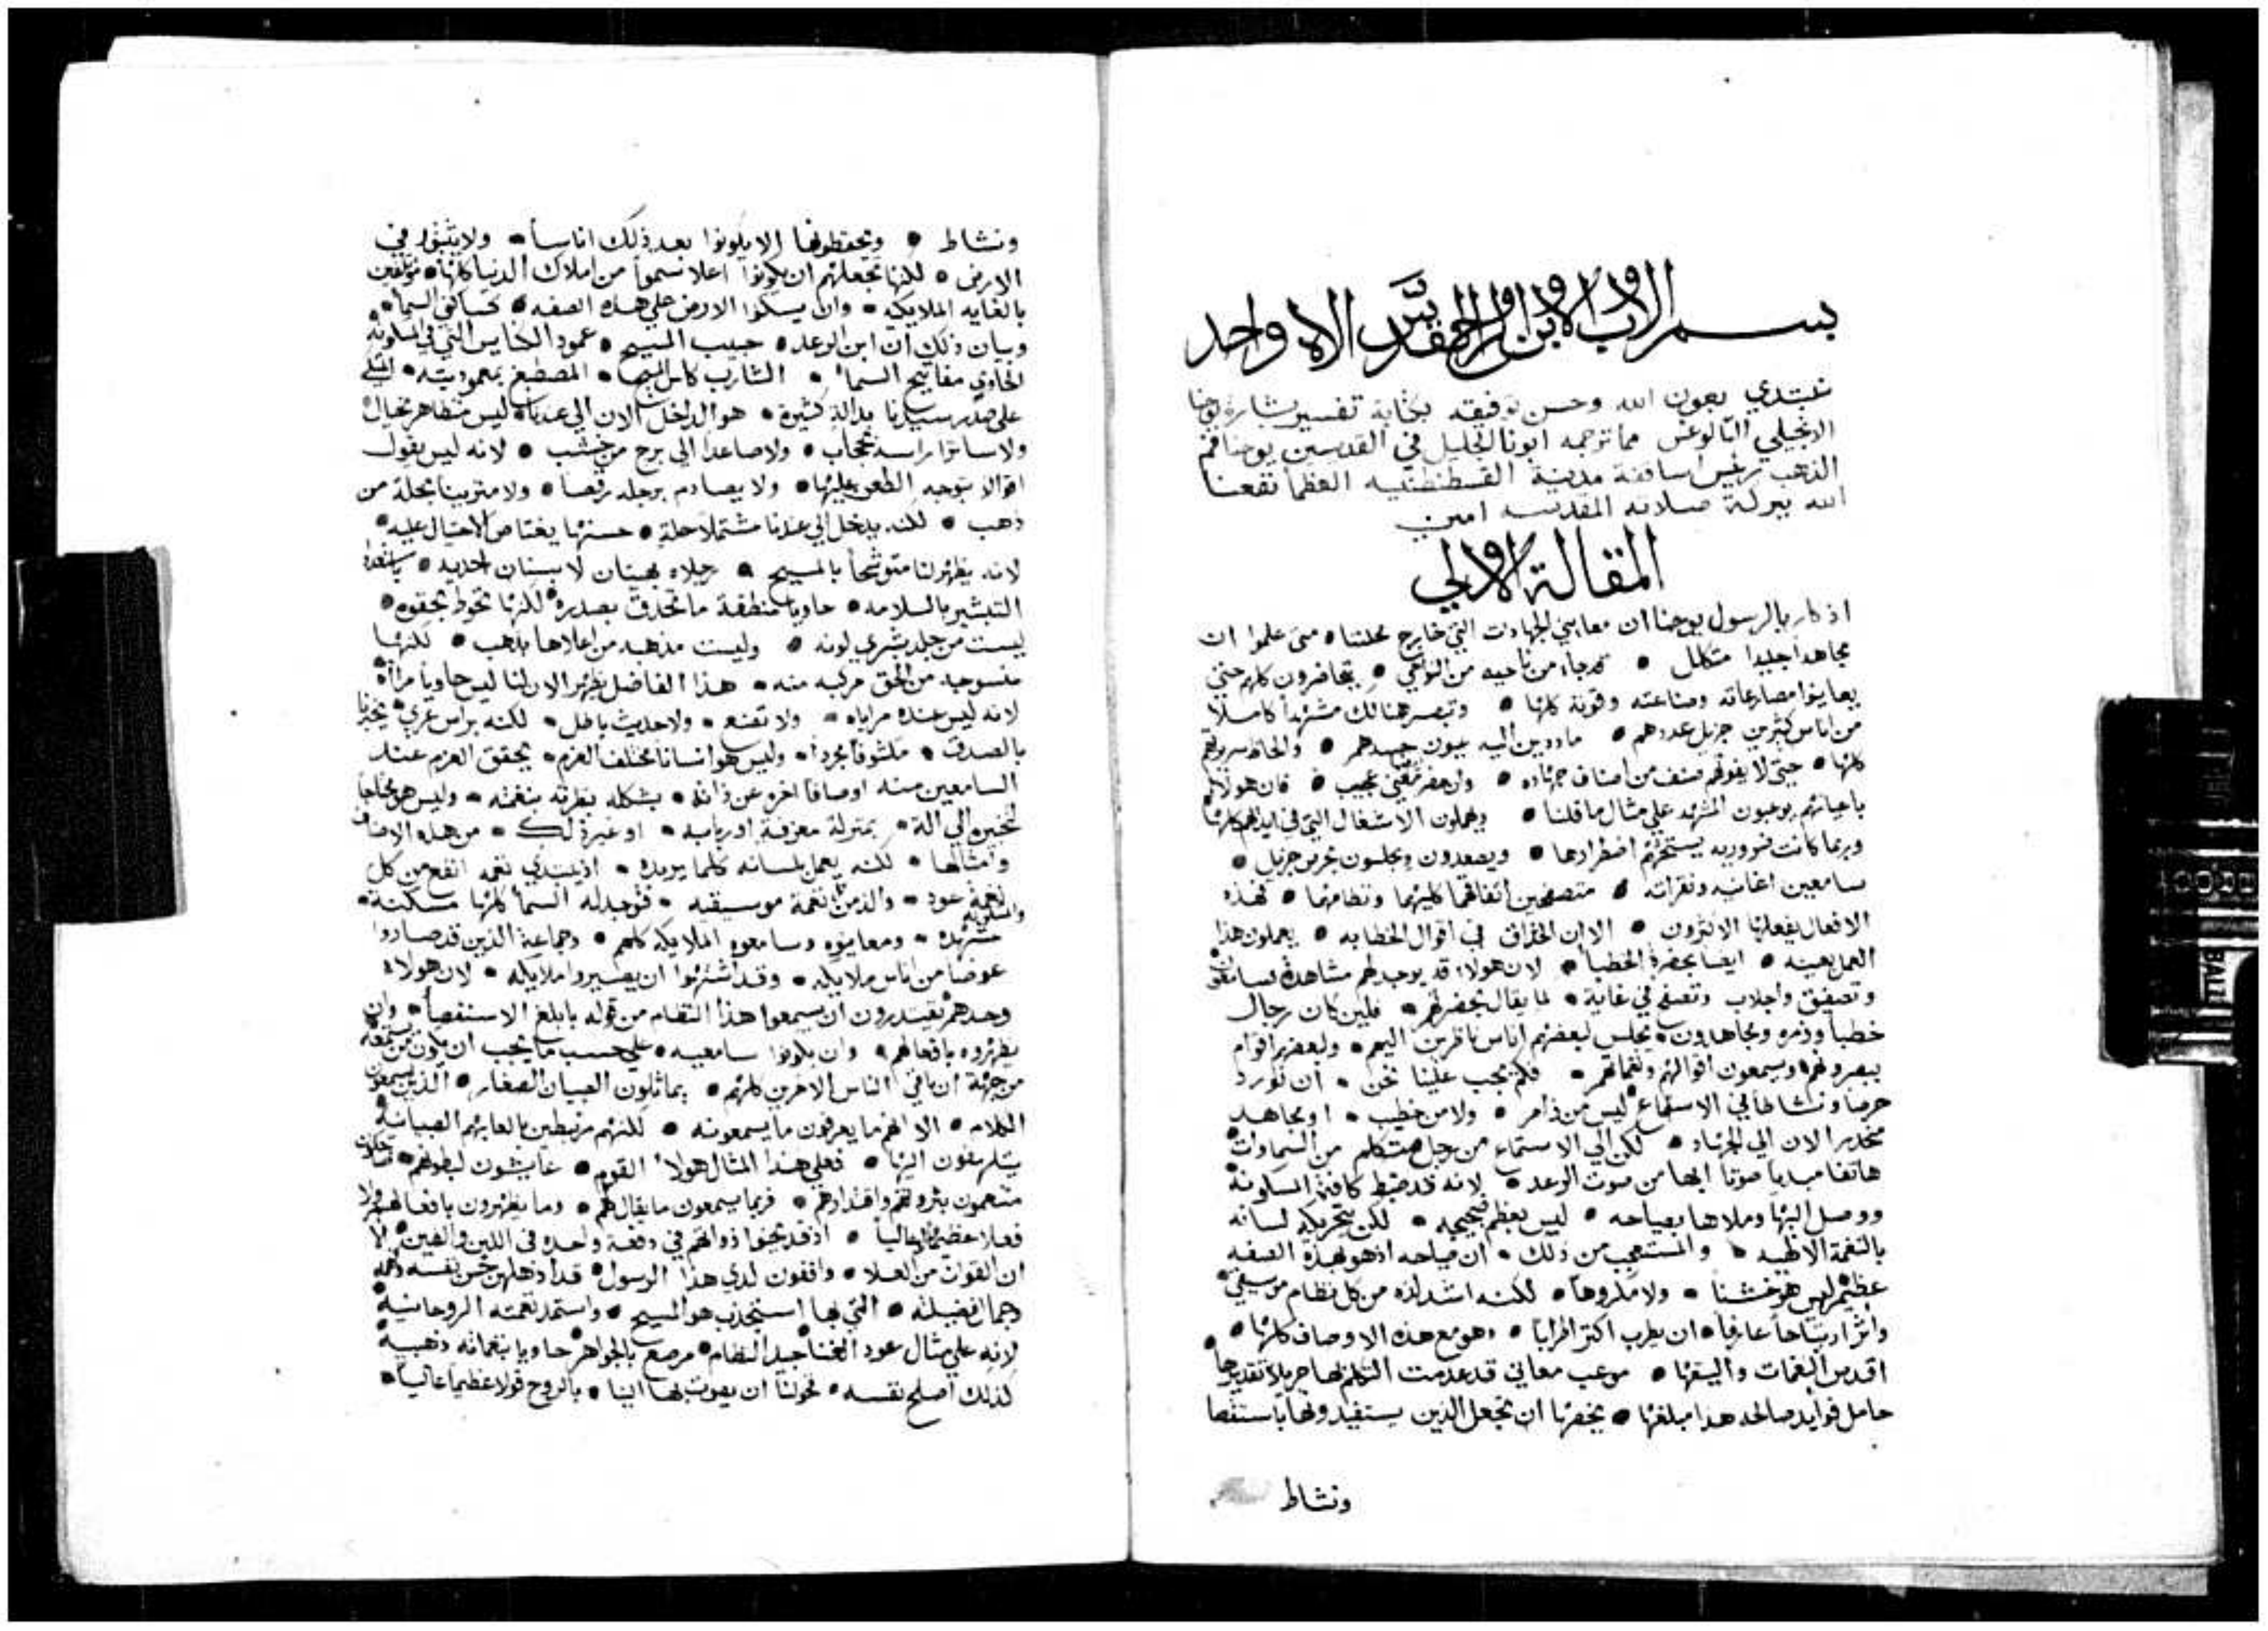 بسم الاب والابن والروح القدس الاه واحد
نبتدي بعون الله وحسن توفيقه بكتابة تفسير بشارة يوحنا
الانجيلي الثالوغس مما ترجمه ابونا الجليل في القديسين يوحنا فم
الذهب رييس اساقفة مدينة القسطنطنيه العظما نفعنا
الله ببركة صلاته المقدسه امين
المقالة الاولي
اذ كار بالرسول يوحنا ان معايني الجهادت التي خارج محلتنا • متى علموا ان
مجاهدا جليدا متكلل • قد جاء من ناحيه من النواحي • يتحاضرون كلهم حتي
يعاينوا مصارعاته وصناعته وقوته كلها • وتبصر هنالك مشهدا كاملا
من اناس كثيرين جزيل عددهم • مادين اليه عيون جسدهم • والحاظ سريرتهم
كلها • حتي لا يفوتهم صنف من اصناف جهاده • وان حضر مغني عجيب • فان هولا كلهم
باعيانهم يوعبون المشهد علي مثال ما قلنا • ويهملون الاشغال التي في ايديهم كلها
وربما كانت ضروريه يستحثهم اضطرارها • ويصعدون ويجلسون بحرص جزيل •
سامعين اغانيه ونقراته • متصفحين اتفاقهما كليهما ونظامهما • فهذه
الافعال يفعلها الاكثرون • الا ان الحذاق في اقوال الخطابه • يعملون هذا
العمل بعينه • ايضا بحضرة الخطبا • لان هولاء قد يوجد لهم مشاهدة وسامعون
وتصفيق واجلاب وتصفح في غاية • لما يقال بحضرتهم • فلين كان رجال
خطبا وزمره ومجاهدون • يجلس لبعضهم اناس ناظرين اليهم • ولبعضهم اقوام
يبصرونهم ويسمعون اقوالهم ونغماتهم • فكم يجب علينا نحن • ان نورد
حرصا ونشاطا في الاستماع ليس من زامر • ولا من خطيب • او مجاهد
منحدر الان الي الجهاد • لكن الي الاستماع من رجل متكلم من السماوات
هاتفا مبديا صوتا ابها من صوت الرعد • لانه قد ضبط كافة المسكونة
ووصل اليها وملاها بصياحه • ليس بعظم ضجيجه • لكن بتحريكه لسانه
بالنغمة الالهيه • والمستعجب من ذلك • ان صياحه اذ هو بهذه الصفه
عظيم ليس هو خشنا • ولا مكروها • لكنه اشد لذه من كل نظام موسيقي
واثر ارتياحا عارفا • ان يطرب اكثر اطرابا • وهو مع هذه الاوصاف كلها •
اقدس النغمات واليقها • موعب معاني قد عدمت التكلم بها جزيلا تقديرها
حامل فوايد صالحه هذا مبلغها • يخصها ان تجعل الذين يستفيدونها باستقصا
ونشاط
ونشاط • ويحفظونها الا يكونوا بعد ذلك اناسا • ولا يثبتوا في
الارض • لكنها تجعلهم ان يكونوا اعلا سموا من املاك الدنيا كلها • مؤتلفين
بالغايه الملايكيه • وان يسكنوا الارض علي هذه الصفه • كسا كني السماء
وبيان ذلك ان ابن الرعد • حبيب المسيح • عمود الكنايس التي في المسكونة
الحاوي مفاتيح السماء • الشارب كاس المسيح • المصطبغ بمعموديته • المتكي
علي صدر سيدنا بدالة كثيرة • هو الداخل الان الي عندنا • ليس متظاهر بخيال
ولا ساترا راسه بحجاب • ولا صاعدا الي برج من خشب • لانه ليس يقول
اقوالا يتوجه الطعن عليها • ولا يصادم برجله رقصا • ولا متزينا بحلة من
ذهب • لكنه يدخل الي عندنا مشتملا حلة • حسنها يعتاص الاحتيال عليه •
لانه يظهر لنا متوشحا بالمسيح • رجلاه بهيتان لابستان احديه • باستعداد
التبشير بالسلامه • حاويا منطقة ما تحدق بصدره • لكنها تحوط بحقوه •
ليست من جلد بشري لونه • وليست مذهبه من اعلاها بذهب • لكنها
منسوجه من الحق مركبه منه • هذا الفاضل يظهر الان لنا ليس حاويا مرااة
لانه ليس عنده مراياه • ولا تقنع • ولا حديث باطل • لكنه براس عري يخبرنا
بالصدق • مكشوفا مجردا • وليس هو انسانا مختلف العزم • يحقق العزم عند
السامعين منه اوصافا اخره عن ذاته • بشكله بنظرته بنغمته • وليس هو محتاجا
لتحيره الي الة • بمنزلة معزفة او ربابه • او غير ذلك • من هذه الاوصاف
وامثالها • لكنه يعمل بلسانه كلما يريده • اذ يبتدي نغمه انفع من كل
نغمة عود • والذ من نغمة موسيقيه • فتوجد له السماء كلها مسكنة •
مشهده • ومعاينوه وسامعوه الملايكه كلهم • وجماعة الذين قد صاروا
عوضا من اناس ملايكه • وقد اشتهوا ان يصيروا ملايكه • لان هولاء
وحدهم يقتدرون ان يسمعوا هذا النظام من قوله بابلغ الاستقصاء • وان
يظهروه بافعالهم • وان يكونوا سامعيه • علي حسب ما يجب ان يكون من يسمعه
من جهة ان باقي الناس الاخرين كلهم • يماثلون الصبيان الصغار • الذين يسمعون
الكلام • الا انهم ما يعرفون ما يسمعونه • لكنهم مرتبطين بالعابهم الصبيانية
يتلهفون اليها • فعلي هذا المثال هولاء القوم • عايشون لبطونهم •
متنعمون بثروتهم واقتدارهم • فربما يسمعون ما يقال لهم • وما يظهرون بافعالهم ولا
فعلا عظيما عاليا • اذ قد تجنوا ذواتهم في دفعة واحده في اللبن والطين • الا
ان القوات من العلا • واقفون لدي هذا الرسول • قد اذهلهم حسن نفسه وفهمه
وجمال فضيلته • التي بها استجذب هو المسيح • واستمد نعمته الروحانية
لانه علي مثال عود الغنا جيد النظام • مرصع بالجواهر حاويا بنغماته ذهبية
كذلك اصلح نفسه • فخولنا ان يصوت بها الينا • بالروح قولا عظيما عاليا •